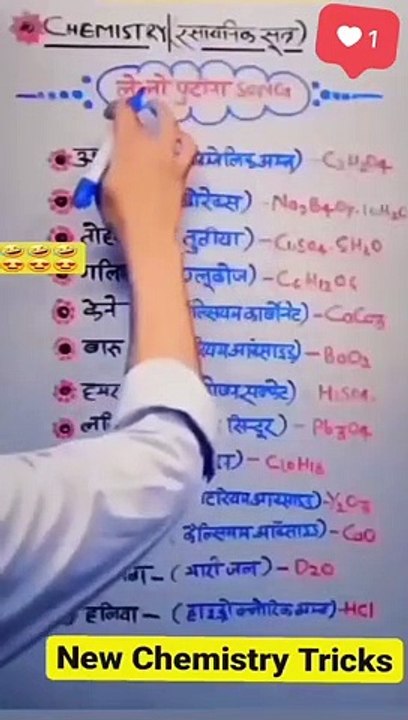 CHEMISTRY (रसायनिक सूत्र)
1
ले लो पुदीना SONG
- C₂H₂O₄
- Na₂B₄O₇.10H₂O
तोह तुतीया) - CuSO₄.5H₂O
गलि ग्लूकोज) - C₆H₁₂O₆
केने ल्सियम कार्बोनेट) - CaCO₃
बारू रियम ऑक्साइड) - BaO₂
हमर H₂SO₄
सिन्दूर) - Pb₃O₄
- C₁₀H₁₆
ट्रियम आक्साइड) - Y₂O₃
कैल्सियम ऑक्साइड) - CaO
- (भारी जल) - D₂O
हनिवा - (हाइड्रो क्लोरिक अम्ल) - HCl
New Chemistry Tricks